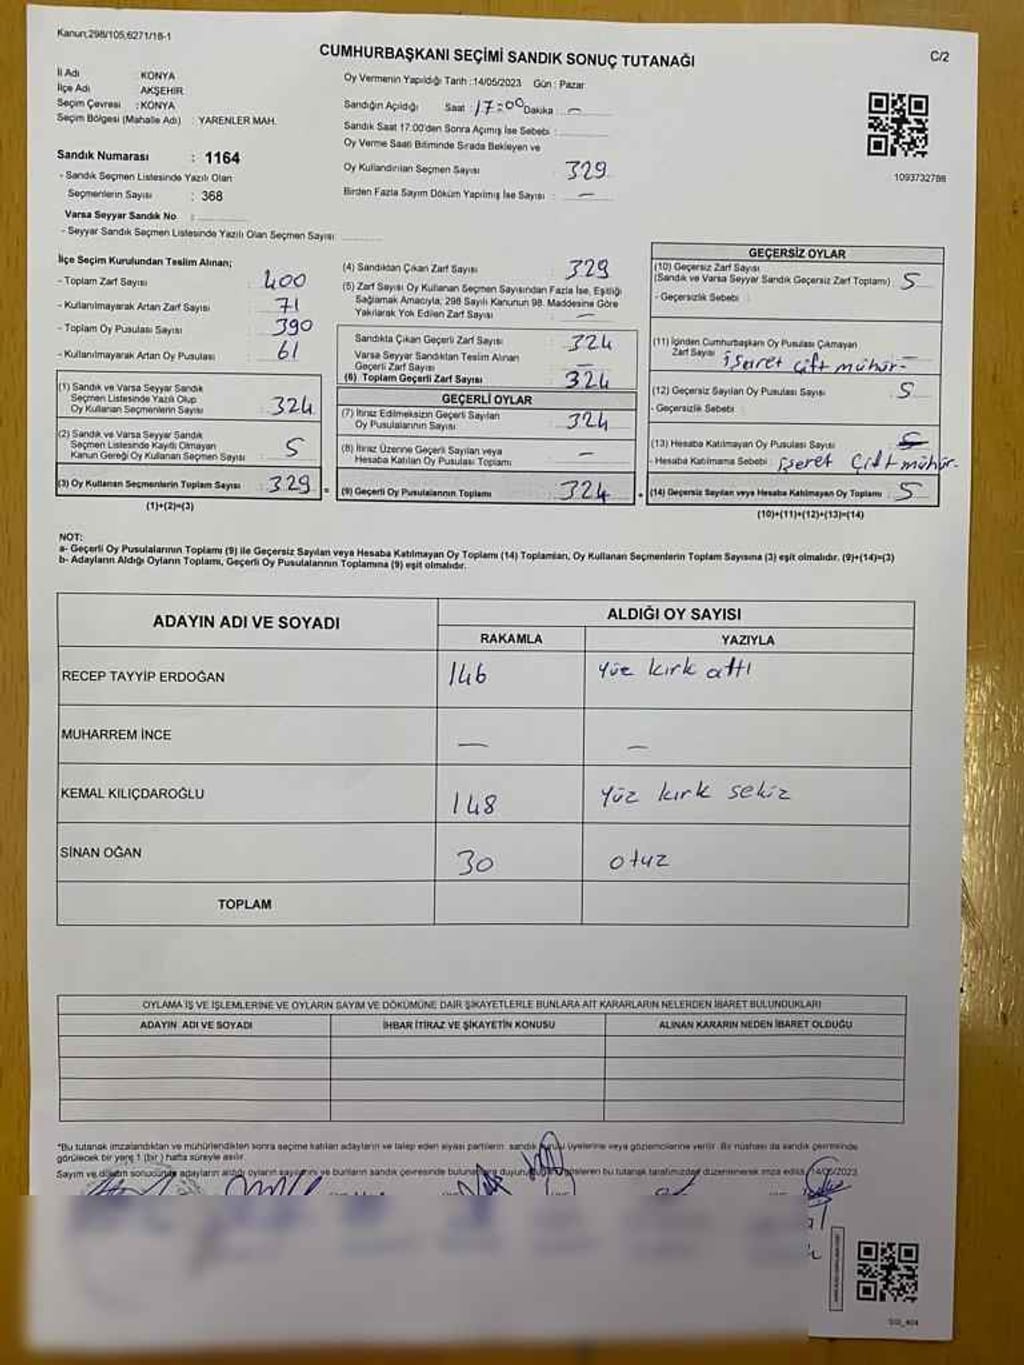 Kanun;298/105,6271/18-1
CUMHURBAŞKANI SEÇİMİ SANDIK SONUÇ TUTANAĞI
C/2
İl Adı KONYA
İlçe Adı AKŞEHİR
Seçim Çevresi : KONYA
Seçim Bölgesi (Mahalle Adı) : YARENLER MAH.
Sandık Numarası : 1164
- Sandık Seçmen Listesinde Yazılı Olan
Seçmenlerin Sayısı : 368
Varsa Seyyar Sandık No :
- Seyyar Sandık Seçmen Listesinde Yazılı Olan Seçmen Sayısı
Oy Vermenin Yapıldığı Tarih :14/05/2023 Gün : Pazar
Sandığın Açıldığı Saat : 17:00 Dakika : —
Sandık Saat 17:00'den Sonra Açımış İse Sebebi :
Oy Verme Saati Bitiminde Sırada Bekleyen ve
Oy Kullandırılan Seçmen Sayısı : 329
Birden Fazla Sayım Döküm Yapılmış İse Sayısı : —
1093732788
İlçe Seçim Kurulundan Teslim Alınan;
- Toplam Zarf Sayısı 400
- Kullanılmayarak Artan Zarf Sayısı 71
- Toplam Oy Pusulası Sayısı 390
- Kullanılmayarak Artan Oy Pusulası 61
(1) Sandık ve Varsa Seyyar Sandık
Seçmen Listesinde Yazılı Olup
Oy Kullanan Seçmenlerin Sayısı 324
(2) Sandık ve Varsa Seyyar Sandık
Seçmen Listesinde Kayıtlı Olmayan
Kanun Gereği Oy Kullanan Seçmen Sayısı 5
(3) Oy Kullanan Seçmenlerin Toplam Sayısı 329
(1)+(2)=(3)
(4) Sandıktan Çıkan Zarf Sayısı 329
(5) Zarf Sayısı Oy Kullanan Seçmen Sayısından Fazla İse, Eşitliği
Sağlamak Amacıyla; 298 Sayılı Kanunun 98. Maddesine Göre
Yakılarak Yok Edilen Zarf Sayısı —
Sandıkta Çıkan Geçerli Zarf Sayısı 324
Varsa Seyyar Sandıktan Teslim Alınan
Geçerli Zarf Sayısı —
(6) Toplam Geçerli Zarf Sayısı 324
GEÇERLİ OYLAR
(7) İtiraz Edilmeksizin Geçerli Sayılan
Oy Pusulalarının Sayısı 324
(8) İtiraz Üzerine Geçerli Sayılan veya
Hesaba Katılan Oy Pusulası Toplamı —
= (9) Geçerli Oy Pusulalarının Toplamı 324
GEÇERSİZ OYLAR
(10) Geçersiz Zarf Sayısı
(Sandık ve Varsa Seyyar Sandık Geçersiz Zarf Toplamı) 5
- Geçersizlik Sebebi :
(11) İçinden Cumhurbaşkanı Oy Pusulası Çıkmayan
Zarf Sayısı —
işaret çift mühür
(12) Geçersiz Sayılan Oy Pusulası Sayısı 5
- Geçersizlik Sebebi :
(13) Hesaba Katılmayan Oy Pusulası Sayısı 5
- Hesaba Katılmama Sebebi : işeret Çift mühür
+ (14) Geçersiz Sayılan veya Hesaba Katılmayan Oy Toplamı 5
(10)+(11)+(12)+(13)=(14)
NOT:
a- Geçerli Oy Pusulalarının Toplamı (9) ile Geçersiz Sayılan veya Hesaba Katılmayan Oy Toplamı (14) Toplamları, Oy Kullanan Seçmenlerin Toplam Sayısına (3) eşit olmalıdır. (9)+(14)=(3)
b- Adayların Aldığı Oyların Toplamı, Geçerli Oy Pusulalarının Toplamına (9) eşit olmalıdır.
ADAYIN ADI VE SOYADI ALDIĞI OY SAYISI
RAKAMLA YAZIYLA
RECEP TAYYİP ERDOĞAN 146 Yüz kırk altı
MUHARREM İNCE — —
KEMAL KILIÇDAROĞLU 148 Yüz kırk sekiz
SİNAN OĞAN 30 otuz
TOPLAM
OYLAMA İŞ VE İŞLEMLERİNE VE OYLARIN SAYIM VE DÖKÜMÜNE DAİR ŞİKAYETLERLE BUNLARA AİT KARARLARIN NELERDEN İBARET BULUNDUKLARI
ADAYIN ADI VE SOYADI İHBAR İTİRAZ VE ŞİKAYETİN KONUSU ALINAN KARARIN NEDEN İBARET OLDUĞU
*Bu tutanak imzalandıktan ve mühürlendikten sonra seçime katılan adayların ve talep eden siyasi partilerin sandık kurulu üyelerine veya gözlemcilerine verilir. Bir nüshası da sandık çevresinde
görülecek bir yere 1 (bir) hafta süreyle asılır.
Sayım ve döküm sonucunda adayların aldığı oyların sayısını ve bunların sandık çevresinde bulunanlara gösteren bu tutanak tarafımızdan düzenlenerek imza edildi. 14/05/2023